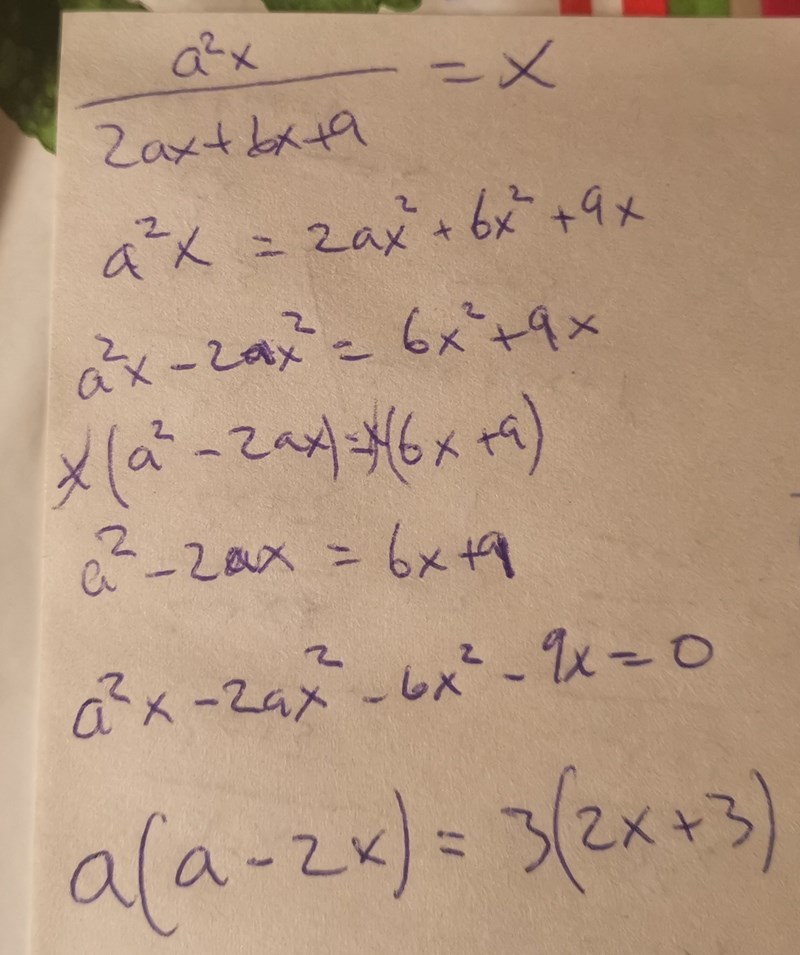 a²x / (2ax+6x+9) = x
a²x = 2ax² + 6x² + 9x
a²x - 2ax² = 6x² + 9x
x(a² - 2ax) = x(6x + 9)
a² - 2ax = 6x + 9
a²x - 2ax² - 6x² - 9x = 0
a(a - 2x) = 3(2x + 3)